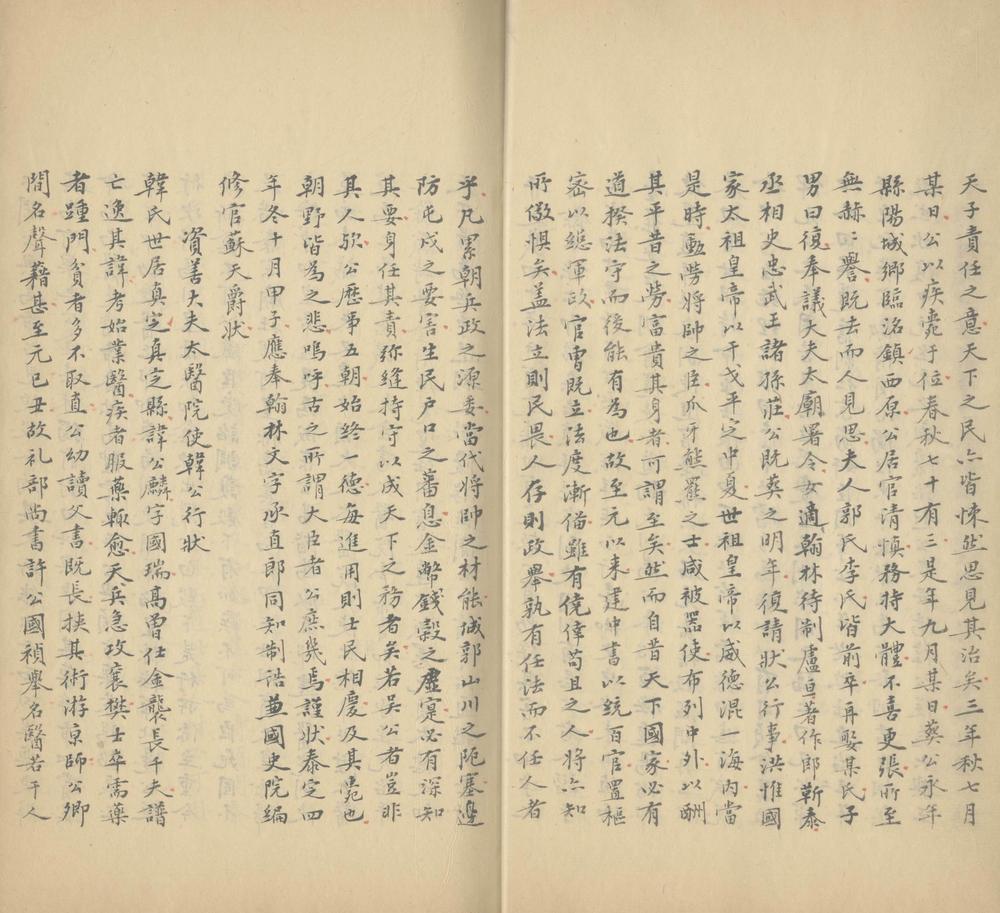 天子責任之意天下之民亦皆悚然思見其治矣三年秋七月
某日公以疾薨于位春秋七十有三是年九月某日葬公永年
縣陽城鄉臨洺鎮西原公居官清慎務持大體不喜更張所至
無赫〻譽既去而人見思夫人郭氏李氏皆前卒再娶某氏子
男曰復奉議大夫太廟署令女適翰林待制盧亘著作郎靳泰
丞相史忠武王諸孫莊公既葬之明年復請狀公行事洪惟國
家太祖皇帝以干戈平定中夏世祖皇帝以威德混一海内當
是時勳勞將帥之臣爪牙熊羆之士咸被器使布列中外以酬
其平昔之勞富貴其身者可謂至矣然而自昔天下國家必有
道揆法守而後能有為也故至元以来建中書以統百官置樞
密以緫軍政官曹既立法度漸偹雖有僥倖苟且之人將亦知
所儆惧矣盖法立則民畏人存則政舉孰有任法而不任人者
乎凡累朝兵政之源委當代將帥之材能城郭山川之阨塞邊
防屯戍之要害生民户口之審息金幣錢穀之虚寔必有深知
其要身任其責弥縫持守以成天下之務者矣若吴公者豈非
其人歟公歷事五朝始終一德每進用則士民相慶及其薨也
朝野皆為之悲嗚呼古之所謂大臣者公庶幾焉謹狀泰定四
年冬十月甲子應奉翰林文字承直郎同知制誥兼國史院編
修官蘇天爵狀
資善大夫太醫院使韓公行狀
韓氏世居真定真定縣諱公麟字國瑞高曾仕金襲長千夫譜
亡逸其諱考始業醫疾者服藥輒愈天兵急攻襄樊士卒需藥
者踵門貧者多不取直公幼讀父書既長挟其術游京師公卿
間名聲藉甚至元己丑故礼部尚書許公國禎舉名醫若干人